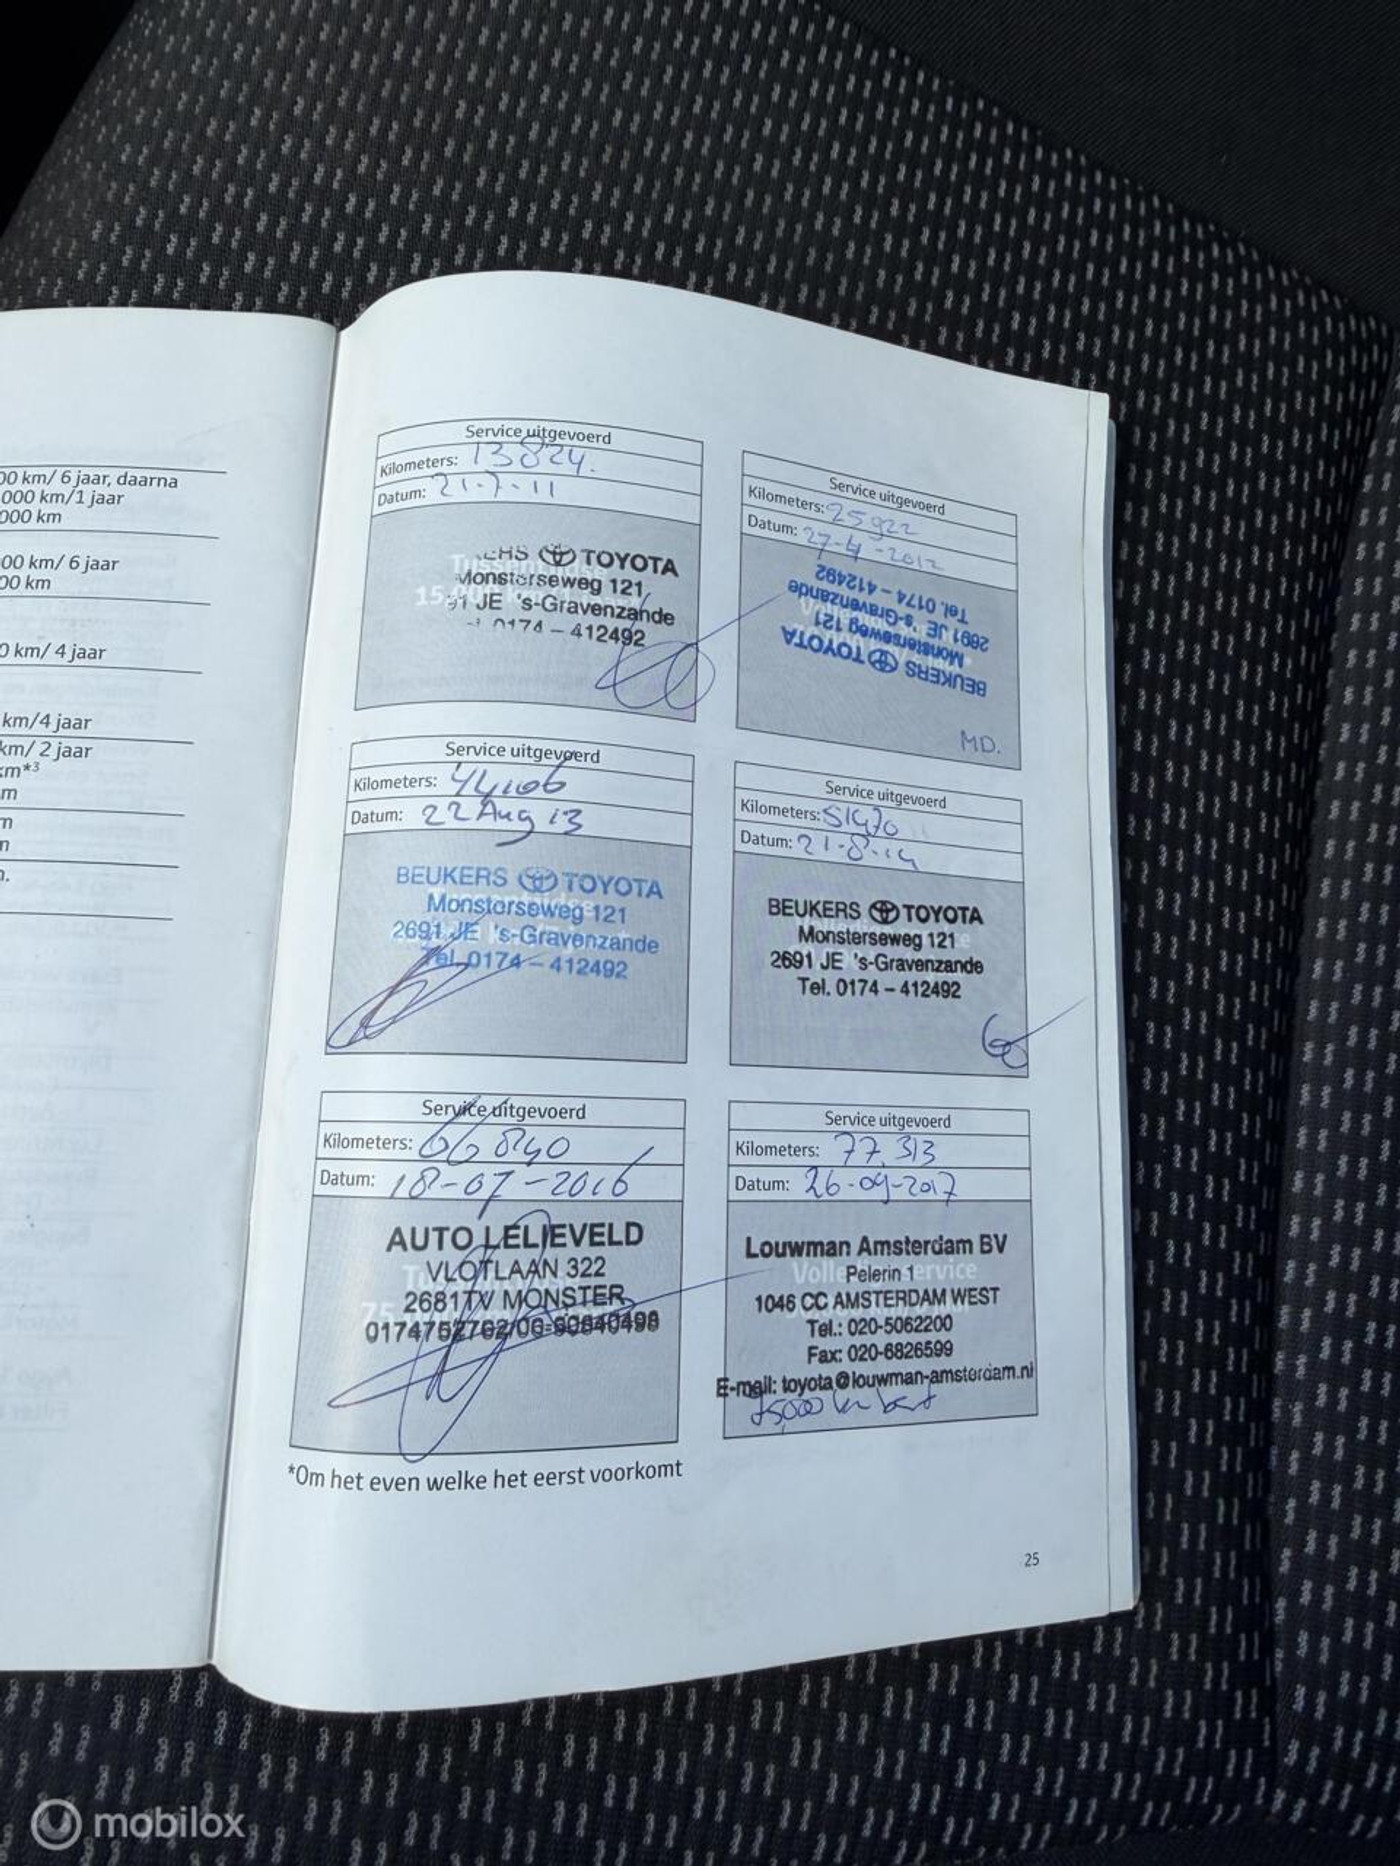 00 km/ 6 jaar, daarna
000 km/1 jaar
000 km
00 km/ 6 jaar
00 km
0 km/ 4 jaar
km/4 jaar
km/ 2 jaar
km*3
m
m
n
n.
Service uitgevoerd
Kilometers: 13824.
Datum: 21-7-11
ERS TOYOTA
Monsterseweg 121
91 JE 's-Gravenzande
0174 – 412492
Service uitgevoerd
Kilometers: 25922
Datum: 27-4-2012
BEUKERS TOYOTA
Monsterseweg 121
2691 JE 's-Gravenzande
Tel. 0174 – 412492
MD.
Service uitgevoerd
Kilometers: 44106
Datum: 22 Aug 13
BEUKERS TOYOTA
Monsterseweg 121
2691 JE 's-Gravenzande
Tel. 0174 – 412492
Service uitgevoerd
Kilometers: 51470
Datum: 21-8-14
BEUKERS TOYOTA
Monsterseweg 121
2691 JE 's-Gravenzande
Tel. 0174 – 412492
Service uitgevoerd
Kilometers: 66840
Datum: 18-07-2016
AUTO LELIEVELD
VLOTLAAN 322
2681TV MONSTER
0174752762/06-50640498
Service uitgevoerd
Kilometers: 77.313
Datum: 26-09-2017
Louwman Amsterdam BV
Pelerin 1
1046 CC AMSTERDAM WEST
Tel.: 020-5062200
Fax: 020-6826599
E-mail: toyota@louwman-amsterdam.nl
75,000 km beurt
*Om het even welke het eerst voorkomt
25
mobilox